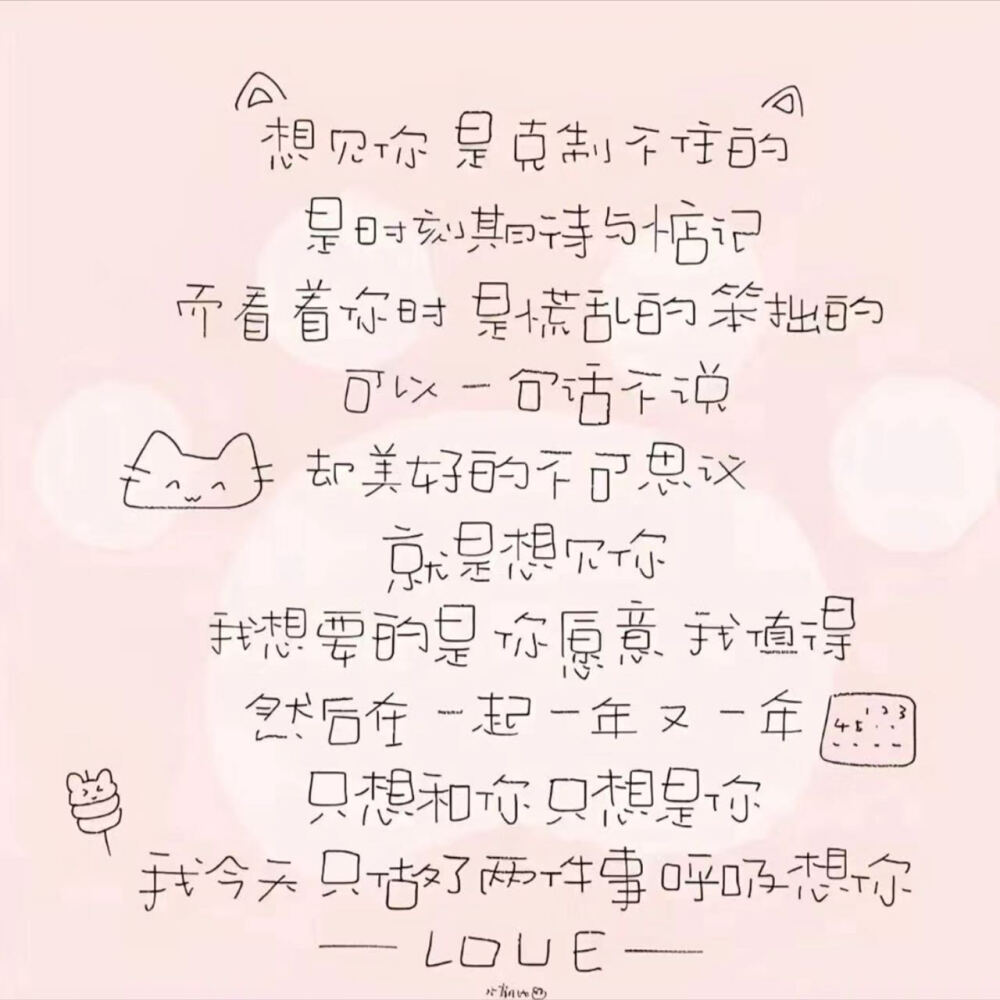 想见你 是克制不住的
是时刻期待与惦记
而看着你时 是慌乱的 笨拙的
可以一句话不说
却美好的不可思议
就是想见你
我想要的是 你愿意 我值得
然后在 一起一年又一年
1 2 3
4 5
只想和你 只想是你
我今天 只做了两件事 呼吸 想你
LOVE